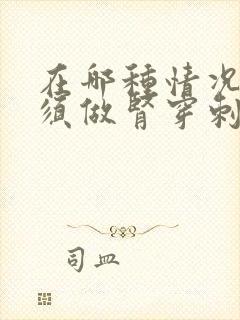 在哪種情况
須做腎穿刺
司血